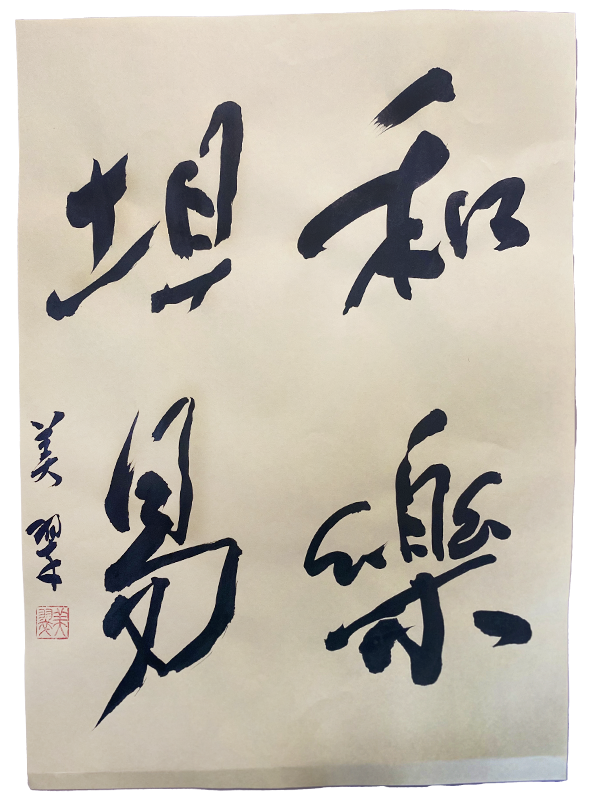 和樂
坦易
美翠
美翠